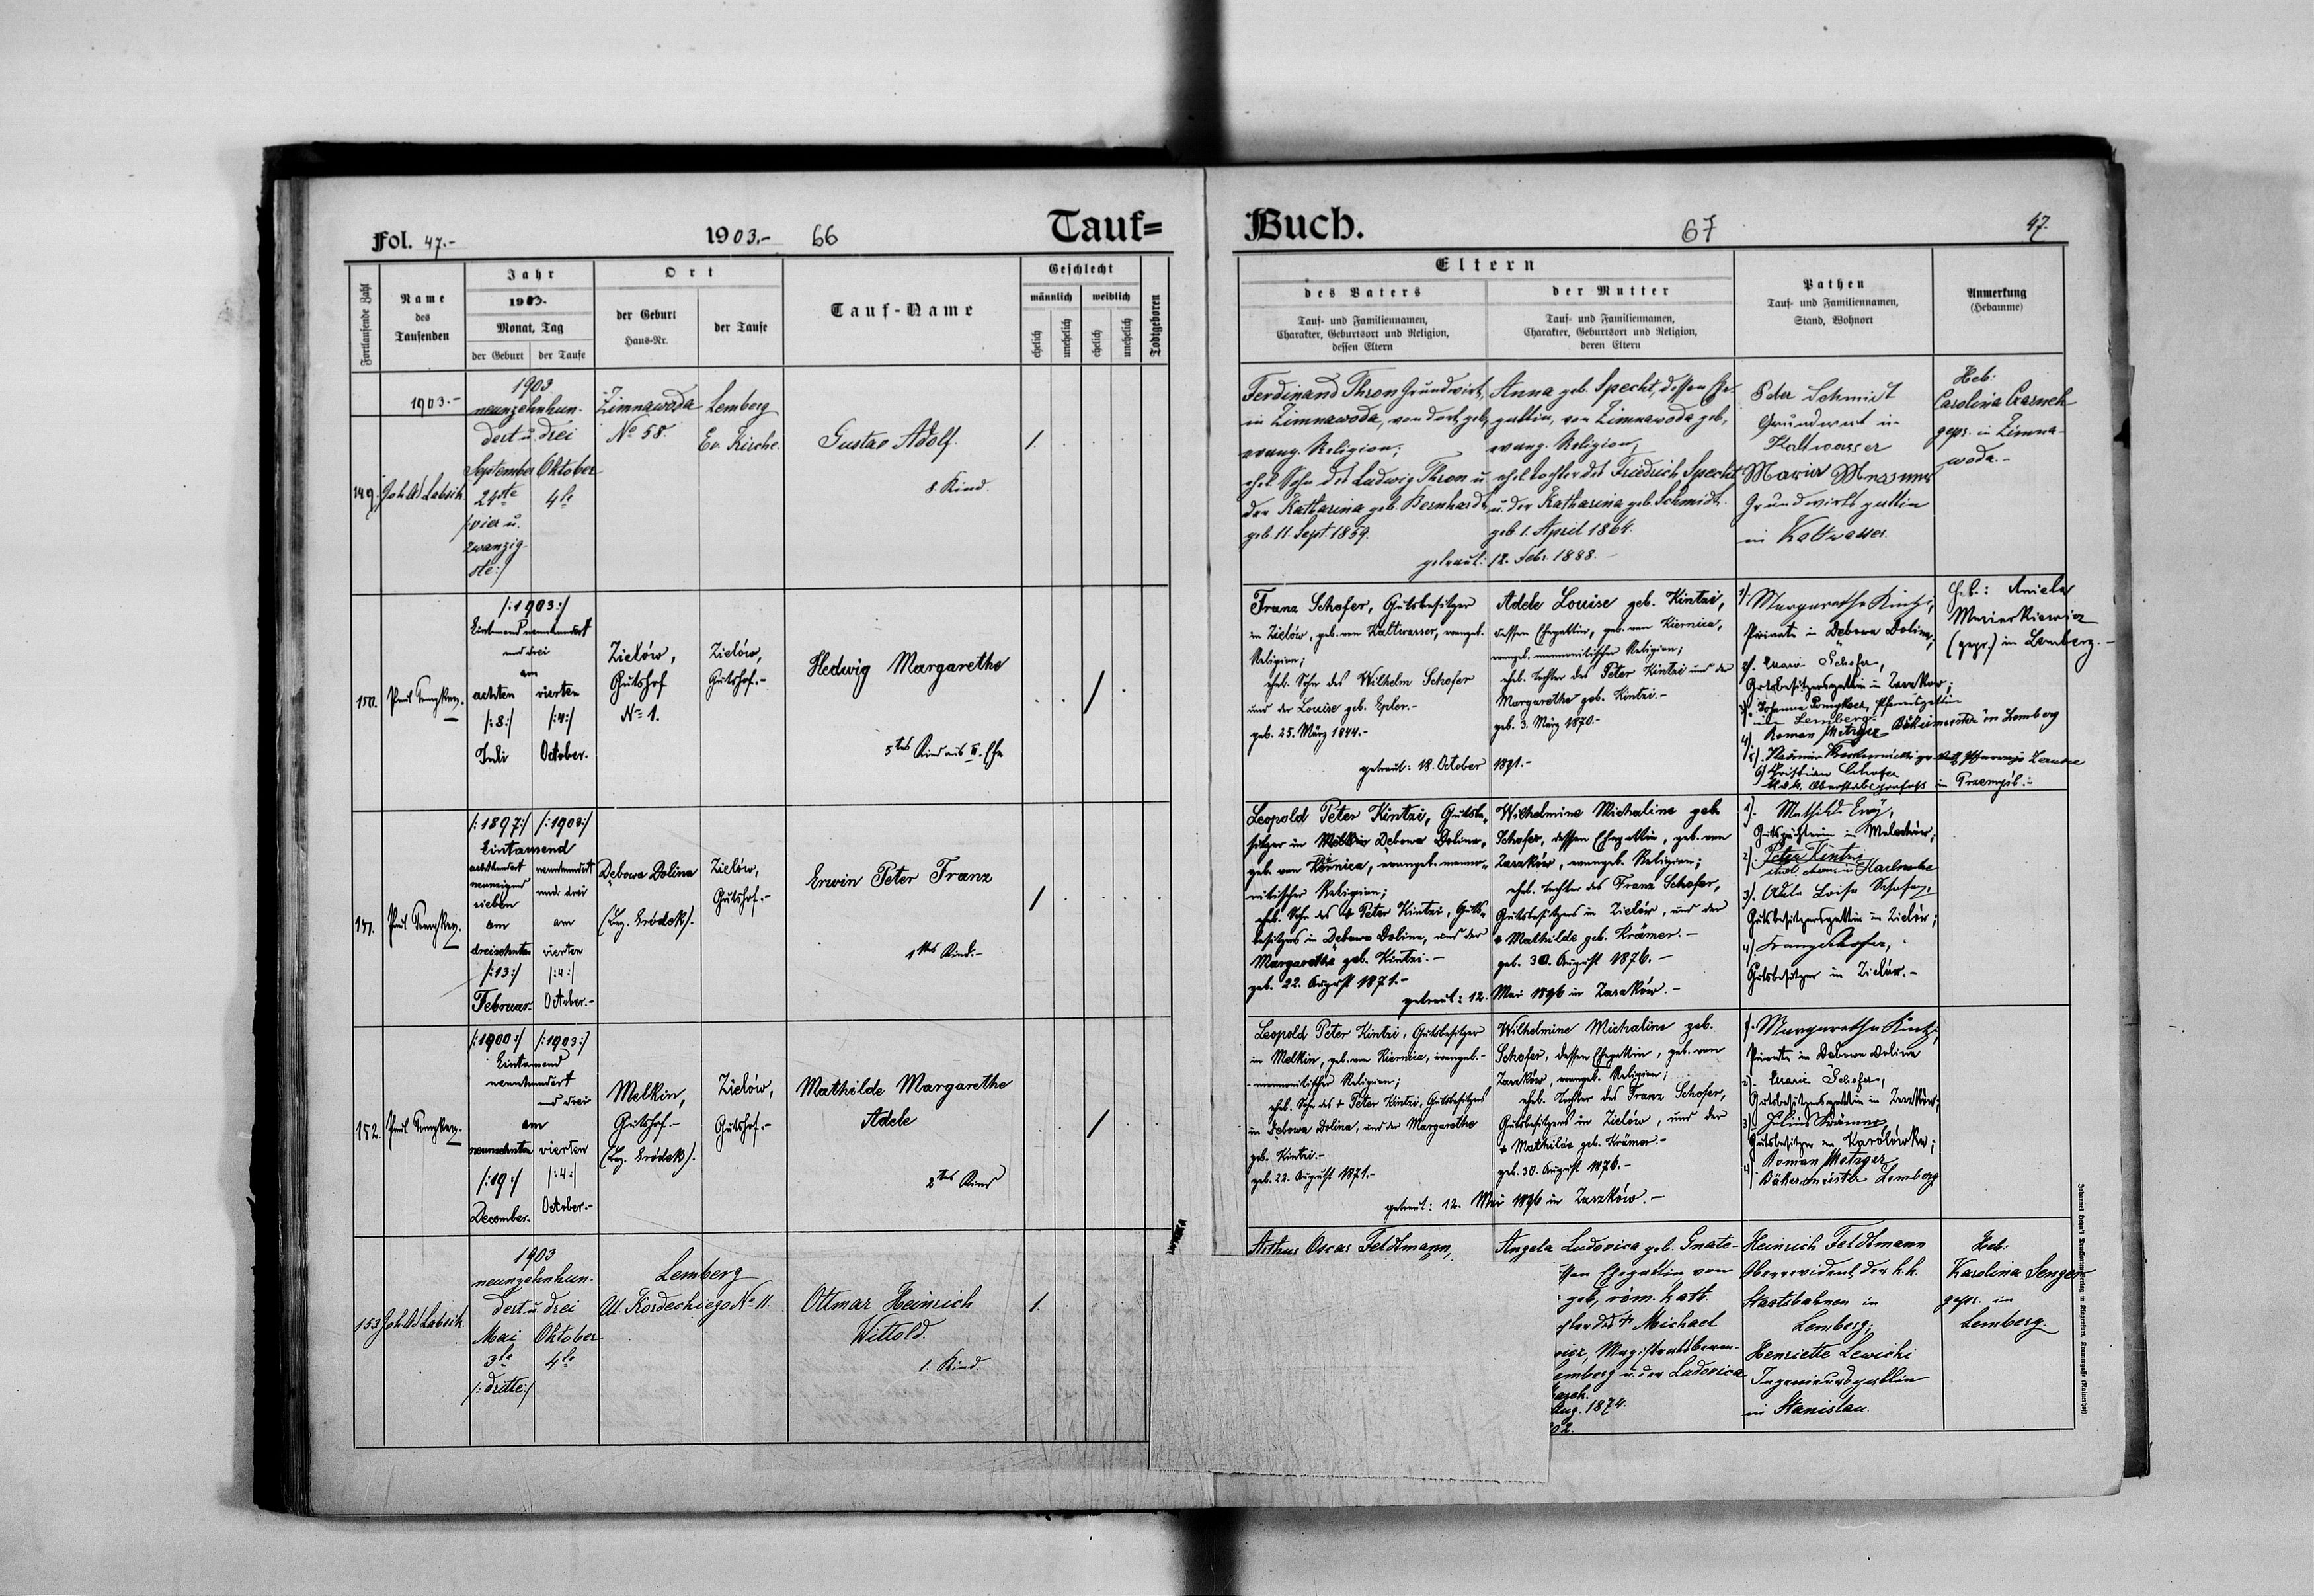 Fol. 47.-
1903.- 66
Tauf=
Buch.
67
47.
Fortlaufende Zahl
Name
des
Taufenden
Jahr
1903.
Monat, Tag
der Geburt
der Taufe
Ort
der Geburt
Haus-Nr.
der Taufe
Tauf-Name
Geschlecht
männlich
weiblich
ehelich
unehelich
ehelich
unehelich
Todtgeboren
Eltern
des Vaters
Tauf- und Familiennamen,
Charakter, Geburtsort und Religion,
dessen Eltern
der Mutter
Tauf- und Familiennamen,
Charakter, Geburtsort und Religion,
deren Eltern
Pathen
Tauf- und Familiennamen,
Stand, Wohnort
Anmerkung
(Hebamme)
1903.-
149.
1903
neunzehnhun-
dert u. drei
September
24ste
/:vier u.
zwanzig-
ste:/
Oktober
4te
Zimnawoda
No 58.
Lemberg
Ev. Kirche.
Gustav Adolf.
8. Kind.
1.
Ferdinand Thron Grundwirt,
in Zimnawoda, von dort geb,
evang. Religion;
ehel. Sohn des Ludwig Thron u
der Katharina geb. Bernhardt
geb. 11. Sept. 1859.
Anna geb. Specht, dessen Ehe-
gattin, von Zimnawoda geb,
evang. Religion,
ehel. Tochter des Friedrich Specht
u. der Katharina geb. Schmidt.
geb. 1. April 1864.
getraut: 12. Febr. 1888.-
Peter Schmidt
Grundwirt in
Kaltwasser
Grundwirtsgattin
in Kaltwasser
Heb:
Carolina
gepr. in Zimna-
woda.-
150.
/:1903:/
Eintausendneunhundert
und drei
am
achten
/:8:/
Juli
vierten
/:4:/
October.
Zielów,
Gutshof
No 1.
Zielów,
Gutshof.-
Hedwig Margarethe
5tes Kind aus II. Ehe
/
Franz Schofer, Gutsbesitzer
in Zielów, geb. von Kaltwasser, evangel.
Religion;
ehel. Sohn des Wilhelm Schofer
und der Louise geb. Epler.-
geb. 25. März 1844.-
Adele Louise geb. Kintzi,
dessen Ehegattin, geb. von Kiernica,
evangel. mennonitischer Religion;
ehel. Tochter des Peter Kintzi und der
Margarethe geb. Kintzi.-
geb. 3. März 1870.-
getraut: 18. October 1891.-
1/. Margarethe Kintzi,
Private in Dębowa Dolina;
2/. Marie Schofer,
Gutsbesitzersgattin in Zarzków;
in Lemberg.
4/. Roman Metzger Bäckermeister in Lemberg
6/ Christian Schofer
in Przemyśl.-
Heb.: Aniela
(gepr.) in Lemberg.-
151.
/:1897:/
/:1903:/
Eintausend
achthundert
neunzigund
sieben
am
dreizehnten
/:13:/
Februar.
neunhundert
und drei
am
vierten
/:4:/
October.-
Dębowa Dolina
(Bez. Gródek).
Zielów,
Gutshof.-
Erwin Peter Franz
1tes Kind.-
/
Leopold Peter Kintzi, Gutsbe-
sitzer in Dębowa Dolina,
geb. von Kiernica, evangel. menno-
nitischer Religion;
ehel. Sohn des Peter Kintzi, Guts-
besitzers in Dębowa Dolina, und der
Margarethe geb. Kintzi.-
geb. 22. August 1871.-
Wilhelmine Michaline geb.
Schofer, dessen Ehegattin, geb. von
Zarzków, evangel. Religion;
ehel. Tochter des Franz Schofer,
Gutsbesitzers in Zielów, und der
+ Mathilde geb. Krämer.-
geb. 30. August 1876.-
getraut: 12. Mai 1896 in Zarzków.-
1/.
2/. Peter Kintzi
in Karlsruhe
3/. Adele Luise Schofer,
Gutsbesitzersgattin in Zielów;
4/. Franz Schofer,
Gutsbesitzer in Zielów.-
152.
/:1900:/
/:1903:/
Eintausend
neunhundert
und drei
am
neunzehnten
/:19:/
December.
vierten
/:4:/
October.-
Melkin,
Gutshof.-
(Bez. Gródek).
Zielów,
Gutshof.-
Mathilde Margarethe
Adele
2tes Kind
/
Leopold Peter Kintzi, Gutsbesitzer
in Melkin, geb. von Kiernica, evangel.-
mennonitischer Religion;
ehel. Sohn des + Peter Kintzi, Gutsbesitzers
in Dębowa Dolina, und der Margarethe
geb. Kintzi.-
geb. 22. August 1871.-
Wilhelmine Michaline geb.
Schofer, dessen Ehegattin, geb. von
Zarzków, evangel. Religion;
ehel. Tochter des Franz Schofer,
Gutsbesitzers in Zielów, und der
+ Mathilde geb. Krämer.-
geb. 30. August 1876.-
getraut: 12. Mai 1896 in Zarzków.-
1. Margarethe Kintzi,
Private in Dębowa Dolina
2/. Marie Schofer,
Gutsbesitzersgattin in Zarzków;
3/. Julius Krämer,
Gutsbesitzer in Karolówka;
4/ Roman Metzger
Bäckermeister Lemberg
153
1903
neunzehnhun-
dert u. drei
Mai
3te
/:dritte:/
Oktober
4te
Lemberg
Ul. Kordeckiego No 11.
Ottmar Heinrich
Wittold.
1. Kind.
1.
Arthur Oscar Feldtmann,
Angela Ludovica geb. Gnate-
sen Ehegattin von
geb, röm. kath.
des + Michael
Magistratsbeam-
emberg u. der Ludovica
Aug. 1874.
02.
Heinrich Feldtmann
Oberrevident der k.k.
Staatsbahnen in
Lemberg;
Henriette Lewicki
Ingenieursgattin
in Stanislau.
Heb:
Karolina Senger
gepr. in
Lemberg.